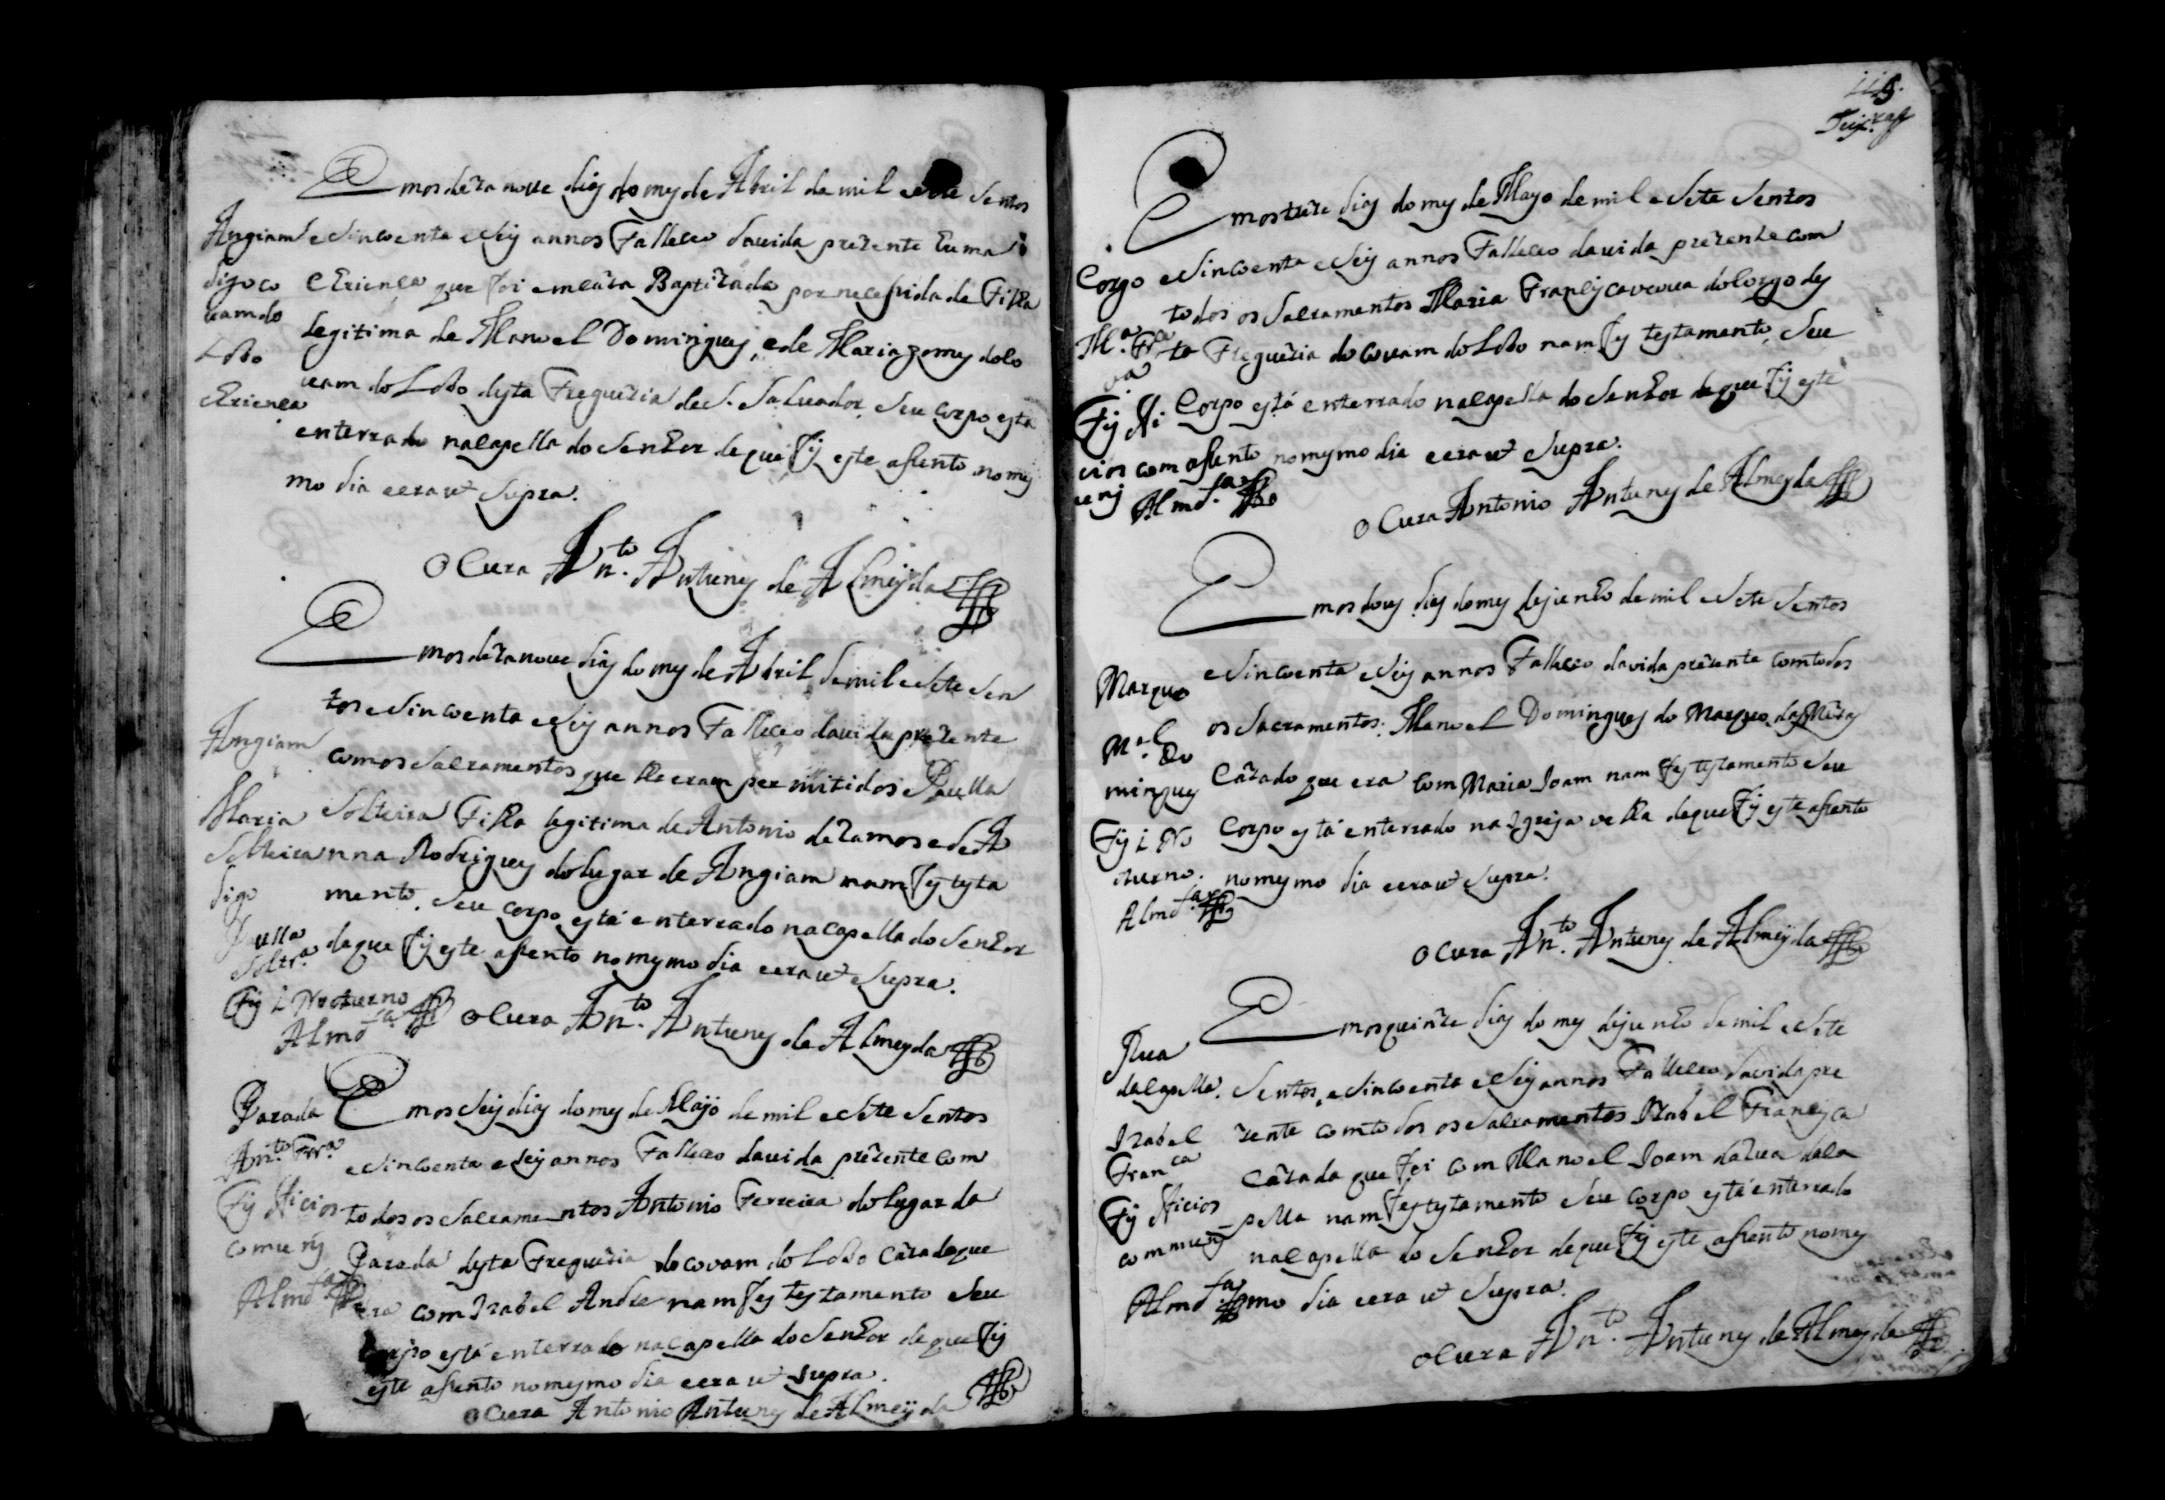 Em os dezanove dias do mes de Abril de mil e sete sentos
Angiam e sincoenta e seis annos Falleceo da vida prezente huma
digo co crienca que foi em caza Baptizada por necessidade Filha
vam do legitima de Manoel Domingues, e de Maria gomes do lo
Lobo vam do Lobo desta Freguezia de S. Salvador. seu corpo esta
crienca enterrado na capella do senhor de que fis este asento no mes
mo dia e era ut supra.
O Cura Ant.to Antunes de Almeyda
Em os dezanove dias do mes de Abril de mil e sete sen
tos e sincoenta e seis annos Falleceo da vida prezente
Angiam com os sacramentos que lhe eram permitidos Paulla
Maria solteira Filha legitima de Antonio de Ramos e de A
Solteira nna Rodrigues do lugar de Angiam nam fes testa
digo mento. seu corpo está enterrado na capella do senhor
Paulla de que fis este asento no mesmo dia e era ut supra.
Soltr.a
Fis 1 Nocturno
Alm.da O Cura Ant.to Antunes de Almeyda
Parada Em os seis dias do mes de Mayo de mil e sete sentos
An.to Frr.a e sincoenta e seis annos Falleceo da vida prezente com
Fis Oficios todos os sacramentos Antonio Ferreira do lugar da
comuns Parada desta Freguezia do covam do Lobo cazado que
Alm.da era com Izabel Andre nam fes testamento seu
corpo está enterrado na capella do senhor de que fis
este asento no mesmo dia e era ut supra.
O Cura Antonio Antunes de Almeyda
115.
Em os treze dias do mes de Mayo de mil e sete sentos
Corgo e sincoenta e seis annos Falleceo da vida prezente com
todos os sacramentos Maria Francisca veuva do Corgo des
M.a Fr.ca ta Freguezia do covam do Lobo nam fes testamento, seu
va
Fis Ofi Corpo está enterrado na capella do senhor de que fis este
cios com asento no mesmo dia e era ut supra.
uns Alm.da
O Cura Antonio Antunes de Almeyda
Em os dous dias do mes de junho de mil e sete sentos
e sincoenta e seis annos Falleceo da vida prezente com todos
Marquo os sacramentos. Manoel Domingues do Marquo da Meza
M.el Do cazado que era com Maria Joam nam fes testamento seu
mingues
Fis 1 No corpo está enterrado na Igreja velha de que fis este asento
cturno. no mesmo dia e era ut supra.
Alm.da
O Cura Ant.to Antunes de Almeyda
Em os quinze dias do mes de junho de mil e sete
Rua
da capella. sentos, e sincoenta e seis annos Falleceo da vida pre
Izabel zente com todos os sacramentos Izabel Francisca
Fran.ca cazada que foi com Manoel Joam da rua da ca
Fis Oficios pella nam fes testamento seu corpo está enterrado
communs na capella do senhor de que fis este asento no mes
Alm.da mo dia e era ut supra.
O Cura Ant.to Antunes de Almeyda